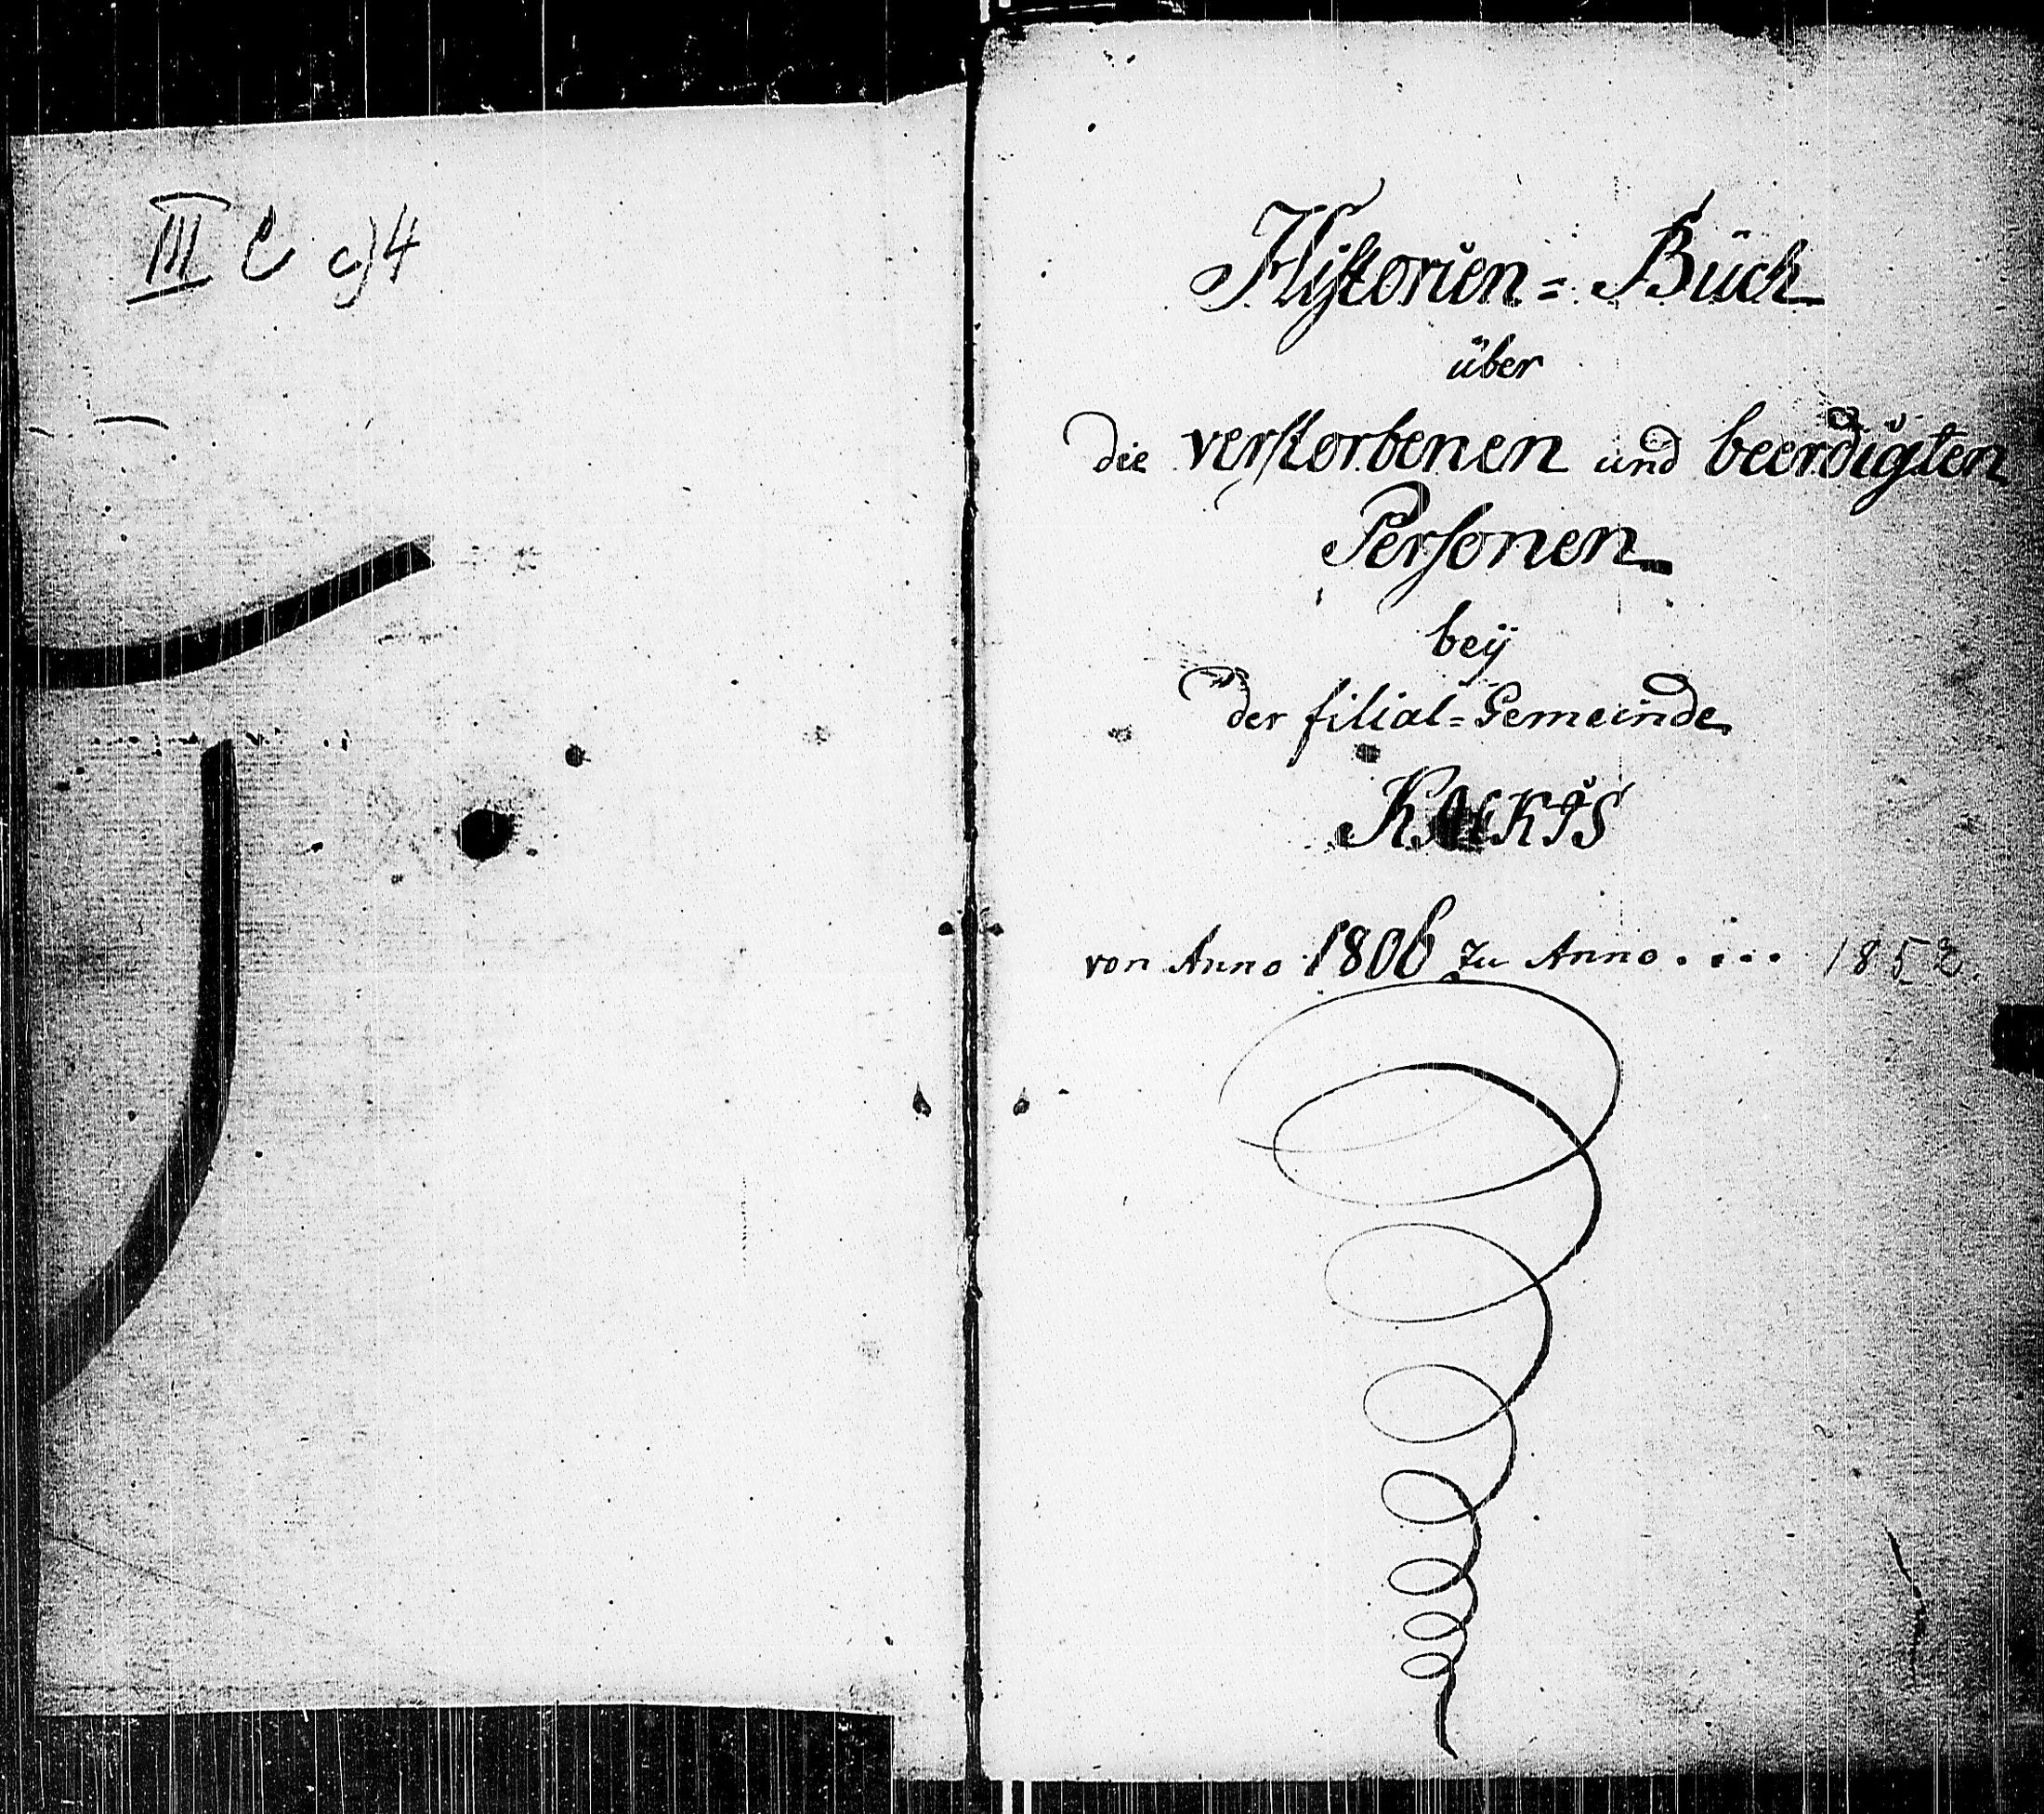 III C c) 4
Historien = Buch
über
die verstorbenen und beerdigten
Personen
bey
der filial = Gemeinde
von Anno 1806 zu Anno .... 1852.